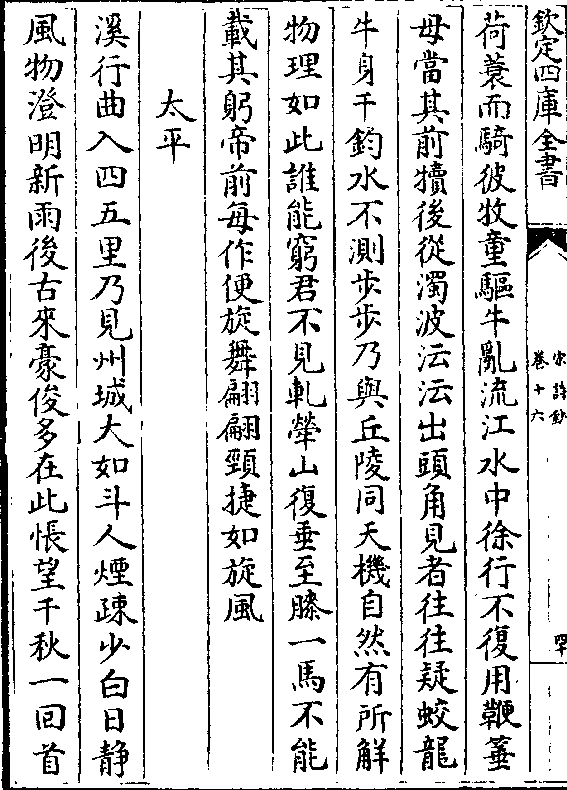 欽定四庫全書
宋詩鈔
卷十六
荷蓑而騎彼牧童驅牛亂流江水中徐行不復用鞭箠
母當其前犢後從濁波沄沄出頭角見者往往疑蛟龍
牛身千鈞水不測步步乃與丘陵同天機自然有所解
物理如此誰能窮君不見軋犖山復垂至膝一馬不能
載其躬帝前每作便旋舞翩翩頸捷如旋風
太平
溪行曲入四五里乃見州城大如斗人煙疎少白日静
風物澄明新雨後古來豪俊多在此悵望千秋一回首